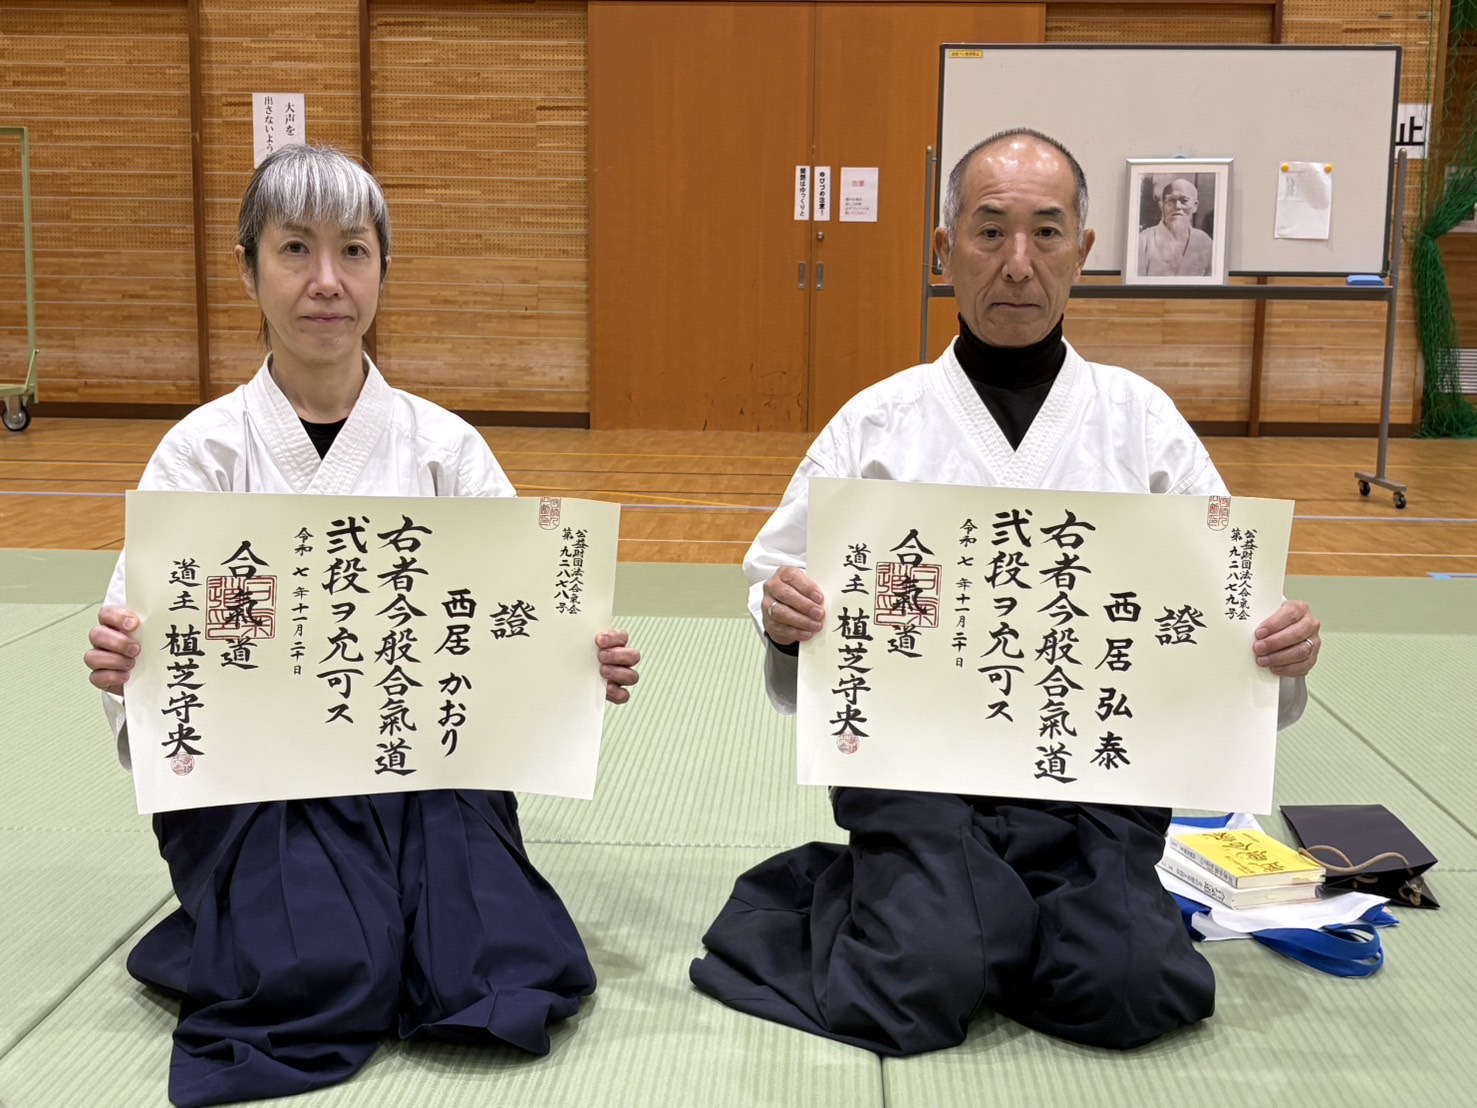 大声を
出さないよう
ゆびづめ注意！
開閉はゆっくりと
注意
止
公益財団法人合氣会
第九二八七八号
證
西居かおり
右者今般合氣道
弐段ヲ允可ス
令和七年十一月二十日
合氣道
道主 植芝守央
公益財団法人合氣会
第九二八七九号
證
西居弘泰
右者今般合氣道
弐段ヲ允可ス
令和七年十一月二十日
合氣道
道主 植芝守央